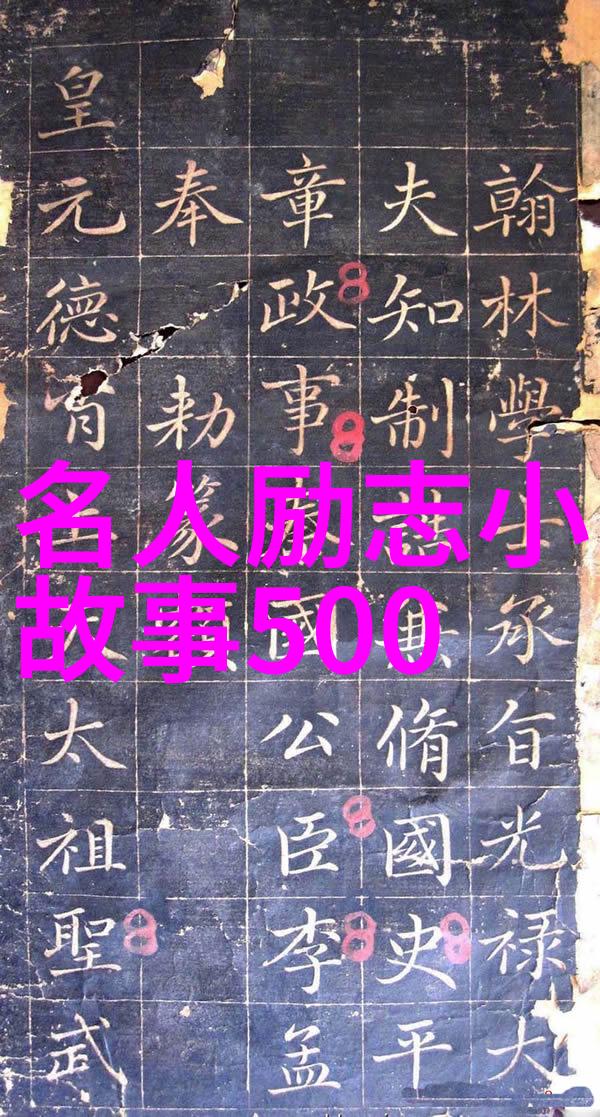 名人励志小
故事500
翰林學士承旨光禄大
夫知制誥兼脩國史平
章政事國公臣李孟
奉勑篆
皇元德太祖聖武